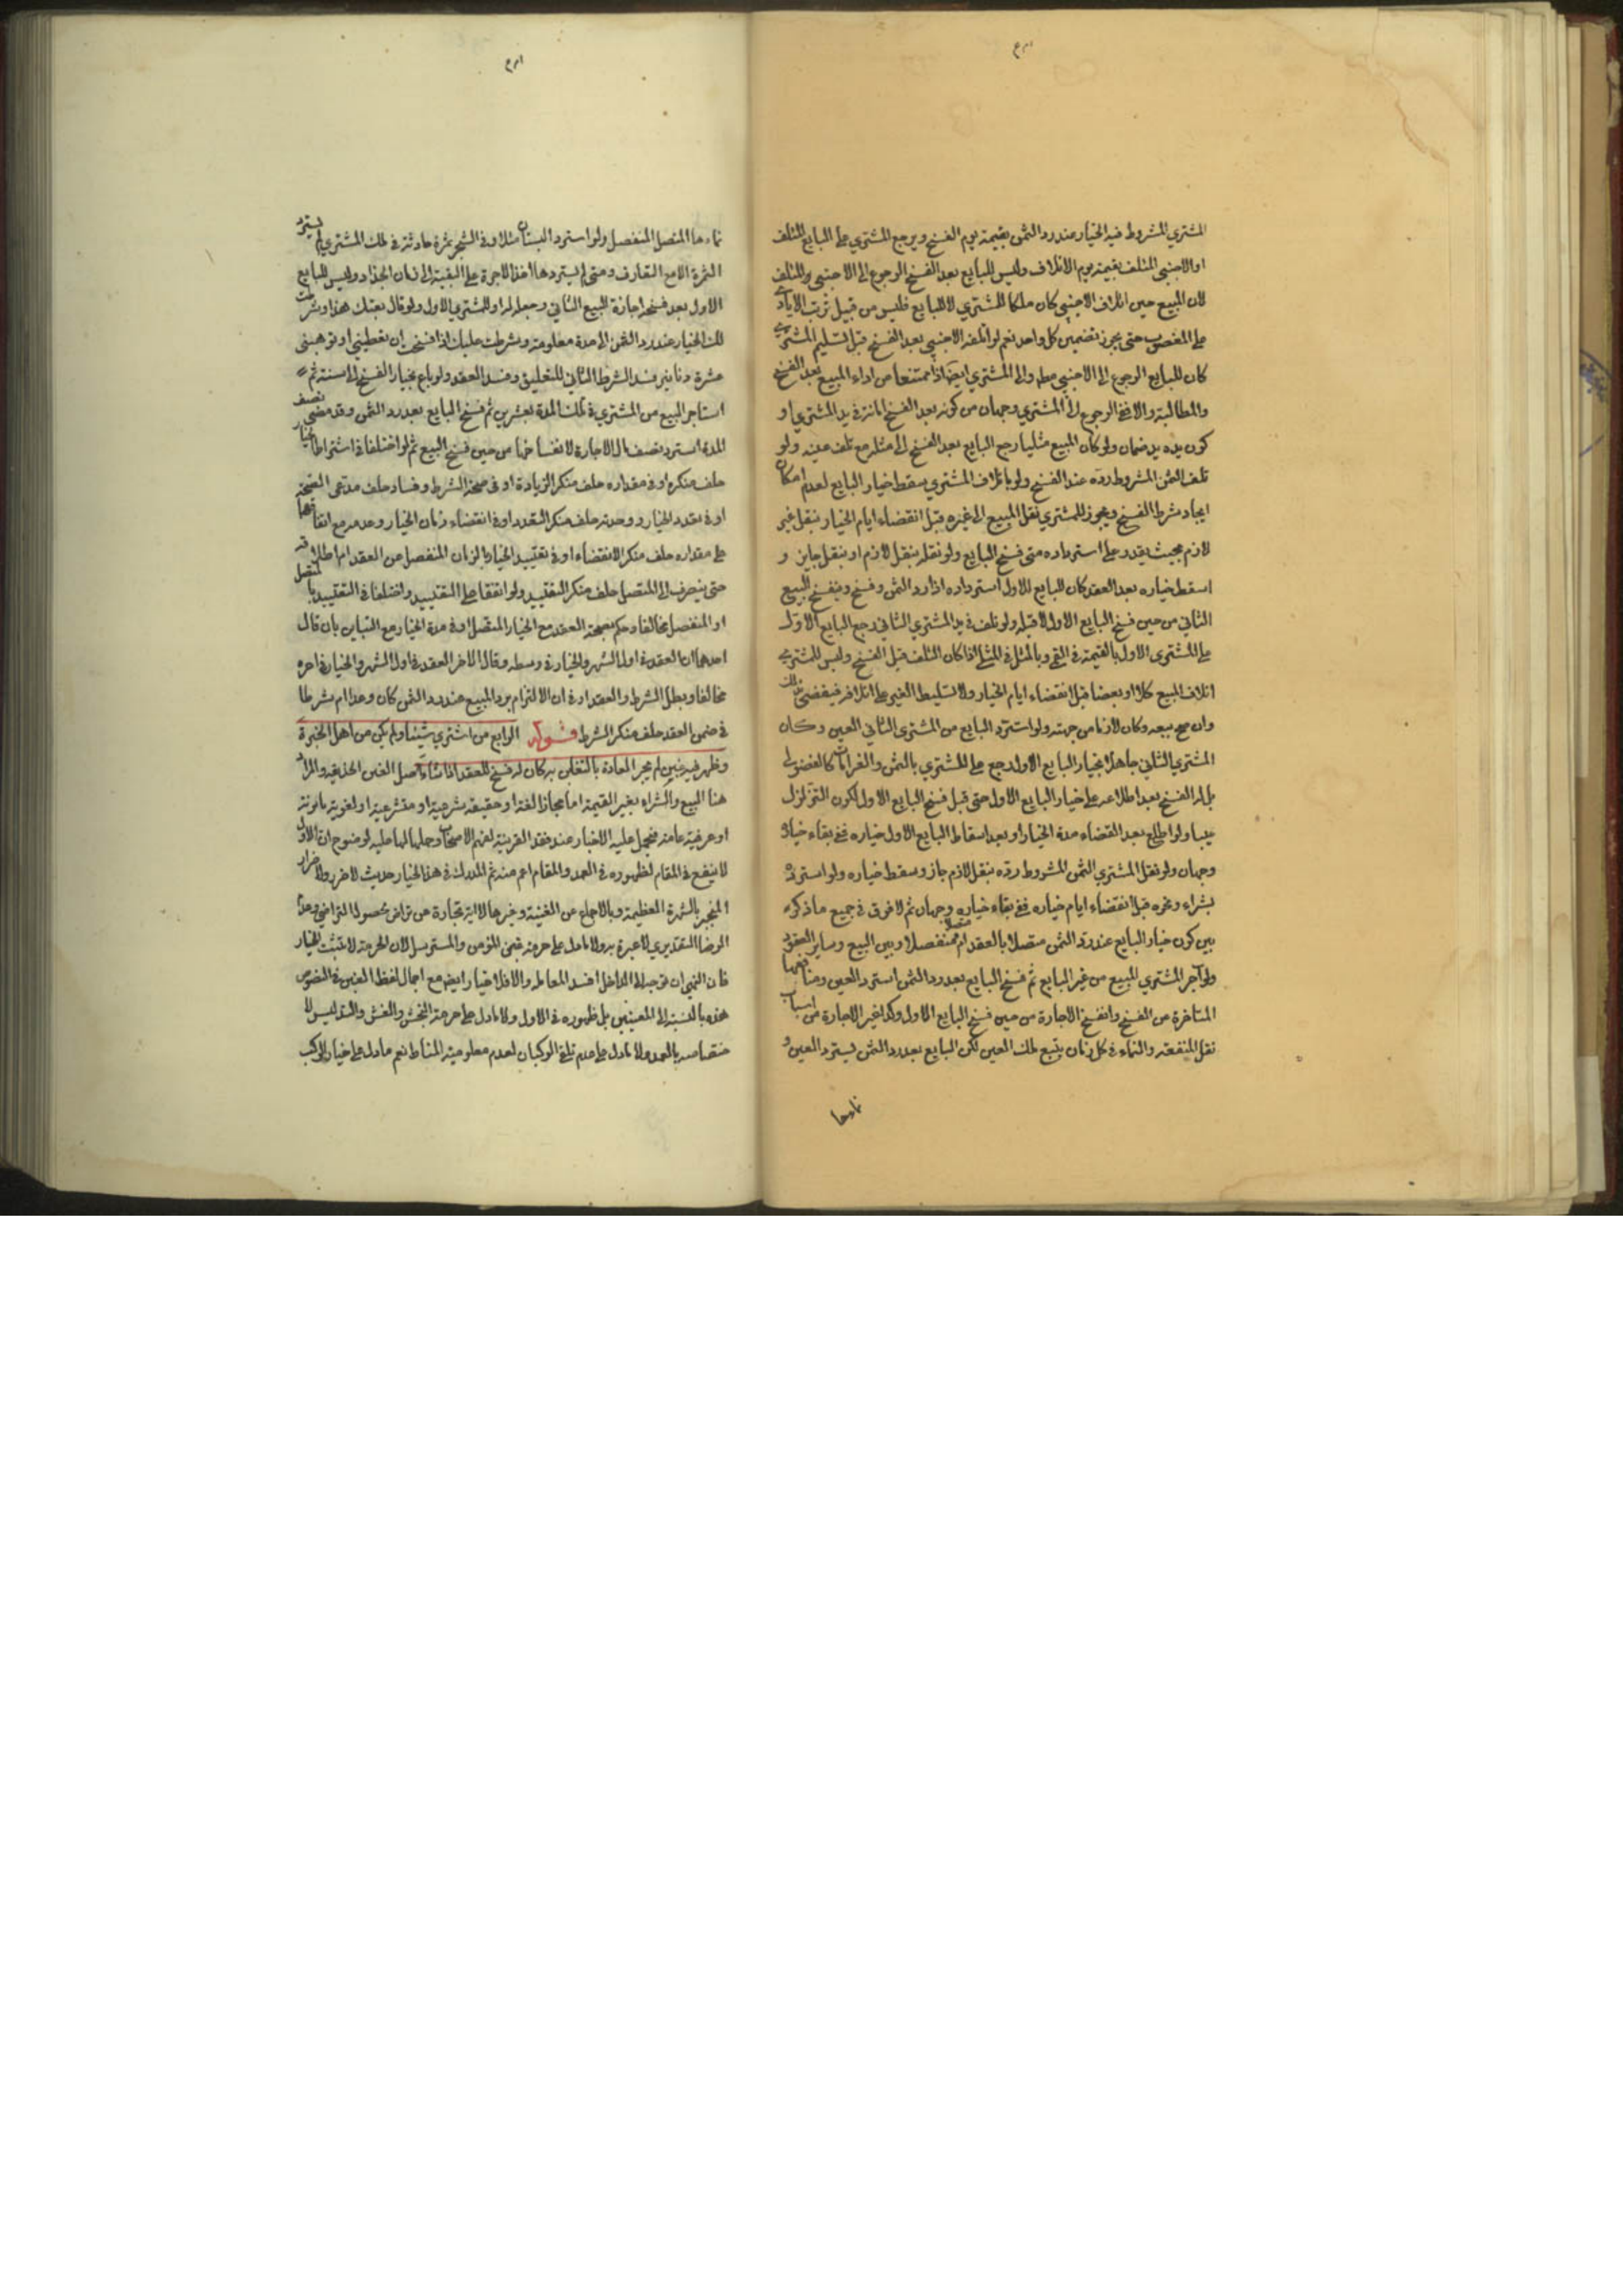 المشتري المشروط فيه الخيار عند رد الثمن بقيمة يوم الفسخ ويرجع المشتري على البايع المتلف
او الاجنبي المتلف بقيمة يوم الاتلاف وليس للبايع بعد الفسخ الرجوع الى الاجنبي المتلف
لان المبيع حين اتلاف الاجنبي كان ملكا للمشتري لا للبايع فليس من قبيل ترتب الايادي
على المغصوب حتى يجوز تضمين كل واحد نعم لو اتلفه الاجنبي بعد الفسخ قبل تسليم المشتري
كان للبايع الرجوع الى الاجنبي والى المشتري ايضا اذا ممتنعا من اداء المبيع بعد الفسخ
والمطالبة والا ففي الرجوع الى المشتري وجهان من كونه بعد الفسخ امانة في يد المشتري او
كون يده يد ضمان ولو كان المبيع مثليا رجع البايع بعد الفسخ الى مثله مع تلف عينه ولو
تلف الثمن المشروط رده عند الفسخ ولو باتلاف المشتري سقط خيار البايع لعدم امكان
ايجاد شرط الفسخ ويجوز للمشتري نقل المبيع الى غيره قبل انقضاء ايام الخيار بنقل غير
لازم بحيث يقدر على استرداده متى فسخ البايع ولو نقله بنقل لازم او بنقل جايز و
اسقط خياره بعد العقد كان للبايع الاول استرداده اذا رد الثمن وفسخ وينفسخ البيع
الثاني من حين فسخ البايع الاول لا قبله ولو تلف في يد المشتري الثاني رجع البايع الاول
على المشتري الاول بالقيمة في القيمي وبالمثل في المثلي اذا كان التلف قبل الفسخ وليس للمشتري
اتلاف المبيع كلا او بعضا قبل انقضاء ايام الخيار ولا تسليط الغير على اتلافه
وان صح بيعه وكان لازما من جهته ولو استرد البايع من المشتري الثاني العين وكان
المشتري الثاني جاهلا بخيار البايع الاول رجع على المشتري بالثمن والغرامات كالفضولي
بل له الفسخ بعد اطلاعه على خيار البايع الاول حتى قبل فسخ البايع الاول لكون التزلزل
عيبا ولو اطلع بعد انقضاء مدة الخيار او بعد اسقاط البايع الاول خياره ففي بقاء خياره
وجهان ولو نقل المشتري الثمن المشروط رده بنقل لازم جاز وسقط خياره ولو استرده
بشراء وغيره قبل انقضاء ايام خياره ففي بقاء خياره وجهان ثم لا فرق في جميع ما ذكره
بين كون خيار البايع عند رد الثمن متصلا بالعقد او منفصلا وبين البيع وساير العقود
ولو آجر المشتري المبيع من غير البايع ثم فسخ البايع بعد رد الثمن استرد العين ومنافعها
المتاخرة من الفسخ وانفسخ الاجارة من حين فسخ البايع الاول وكذا غير الاجارة من اسباب
نقل المنفعة والنماء في كل زمان يتبع ملك العين لكن البايع بعد رد الثمن يسترد العين و
نماءها
نماءها المتصل لا المنفصل ولو استرد البستان مثلا وفي الشجر ثمرة حادثة في ملك المشتري لم يسترد
الثمرة الا مع التعارف ومتى لم يستردها اخذ الاجرة على التبقية الى زمان الجذاذ وليس للبايع
الاول بعد فسخه اجازة البيع الثاني وجعله له او للمشتري الاول ولو قال بعتك هذا وشرطت
لك الخيار عند رد الثمن الى مدة معلومة وشرطت عليك اذا فسخت ان تعطيني او توهبني
عشرة دنانير فسد الشرط الثاني للتعليق وفسد العقد ولو باع بخيار الفسخ الى سنة ثم
استاجر المبيع من المشتري في تلك المدة بعشرين ثم فسخ البايع بعد رد الثمن وقد مضى نصف
المدة استرد نصف مال الاجارة لانفساخها من حين فسخ البيع ثم لو اختلفا في اشتراط الخيار
حلف منكره او في مقداره حلف منكر الزيادة او في صحة الشرط وفساده حلف مدعى الصحة
او في تعدد الخيار ووحدته حلف منكر التعدد او في انقضاء زمان الخيار وعدمه مع اتفاقهما
على مقداره حلف منكر الانقضاء او في تقييد الخيار بالزمان المنفصل عن العقد ام اطلاقه
حتى ينصرف الى المتصل حلف منكر التقييد ولو اتفقا على التقييد واختلفا في التقييد بالمتصل
او المنفصل تحالفا وحكم بصحة العقد مع الخيار المتصل او في مدة الخيار مع التباين بان قال
احدهما ان العقد في اول الشهر والخيار في وسطه وقال الاخر العقد في اول الشهر والخيار في اخره
تحالفا وبطل الشرط والعقد او في ان الالتزام برد المبيع عند رد الثمن كان وعدا ام شرطا
في ضمن العقد حلف منكر الشرط قوله الرابع من اشترى شيئا ولم يكن من اهل الخبرة
وظهر فيه غبن لم يجر العادة بالتغابن به كان له فسخ العقد اذا شاء اصل الغبن الخديعة والمراد
هنا البيع والشراء بغير القيمة اما مجازا لغة او حقيقة شرعية او متشرعية او لغوية ثانوية
او عرفية عامة فيحمل عليه الاخبار عند فقد القرينة لفهم الاصحاب وحملها لها عليه لوضوح ان الاول
لا ينفع في المقام لظهوره في العمد والمقام اعم منه ثم المدرك في هذا الخيار حديث لا ضرر ولا ضرار
المنجبر بالشهرة العظيمة وبالاجماع عن الغنية وغيرها لا اية تجارة عن تراض لحصول التراضي وعدم
الرضا التقديري لا عبرة به ولا ما دل على حرمة غبن المؤمن والمسترسل لان الحرمة لا تثبت الخيار
فان النهي ان توجه الى الداخل افسد المعاملة والا فلا خيار ايضا مع اجمال لفظ الغبن في النصوص
هذه بالنسبة الى المعنيين بل ظهوره في الاول ولا ما دل على حرمة النجش والغش والتدليس
بالعمد ولا ما دل على عدم تلقي الركبان لعدم معلومية المناط نعم ما دل على خيار الركب